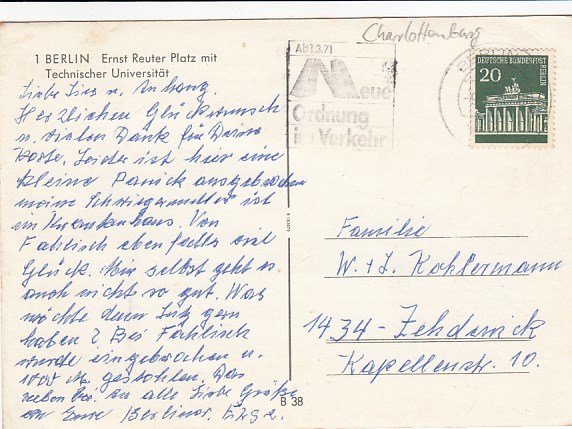 Charlottenburg
1 BERLIN Ernst Reuter Platz mit
Technischer Universität
Ab 1.3.71
Neue
Ordnung
im Verkehr
BERLIN
20
DEUTSCHE BUNDESPOST
BERLIN
Liebe u. Anhang.
Herzlichen Glückwunsch
u. vielen Dank für Deine
Karte. Leider ist hier eine
kleine Panick ausgebrochen
meine Schwiegermutter ist
im Krankenhaus. Von
Fahlisch ebenfalls viel
Glück. Mir selbst geht es
auch nicht so gut. Was
möchte denn Lutz gern
haben? Bei Fahlisch
wurde eingebrochen u.
100 M. gestohlen. Das
nebenbei. An alle Liebe Grüße
an Eure Berliner.
Familie
W. + I. Kohlermann
1434 - Zehdenick
Kapellenstr. 10.
B 38